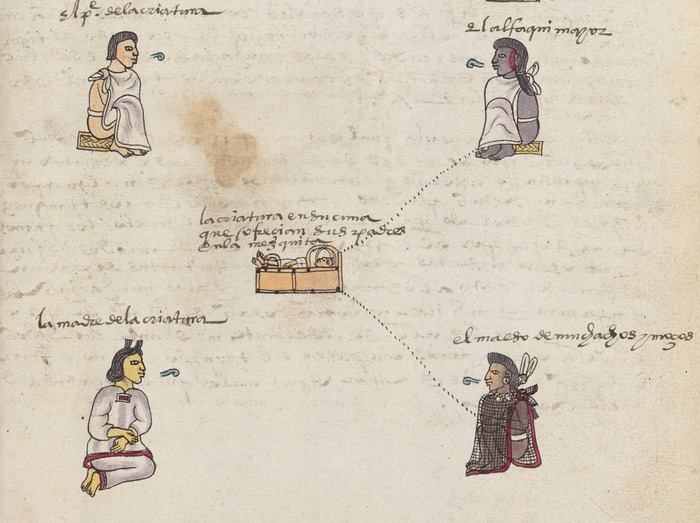 el pe. de la criatura
el alfaqui mayor
la criatura en su cuna
que ofrecian sus padres
en la mezquita
la madre de la criatura
el maeso de muchachos y moços